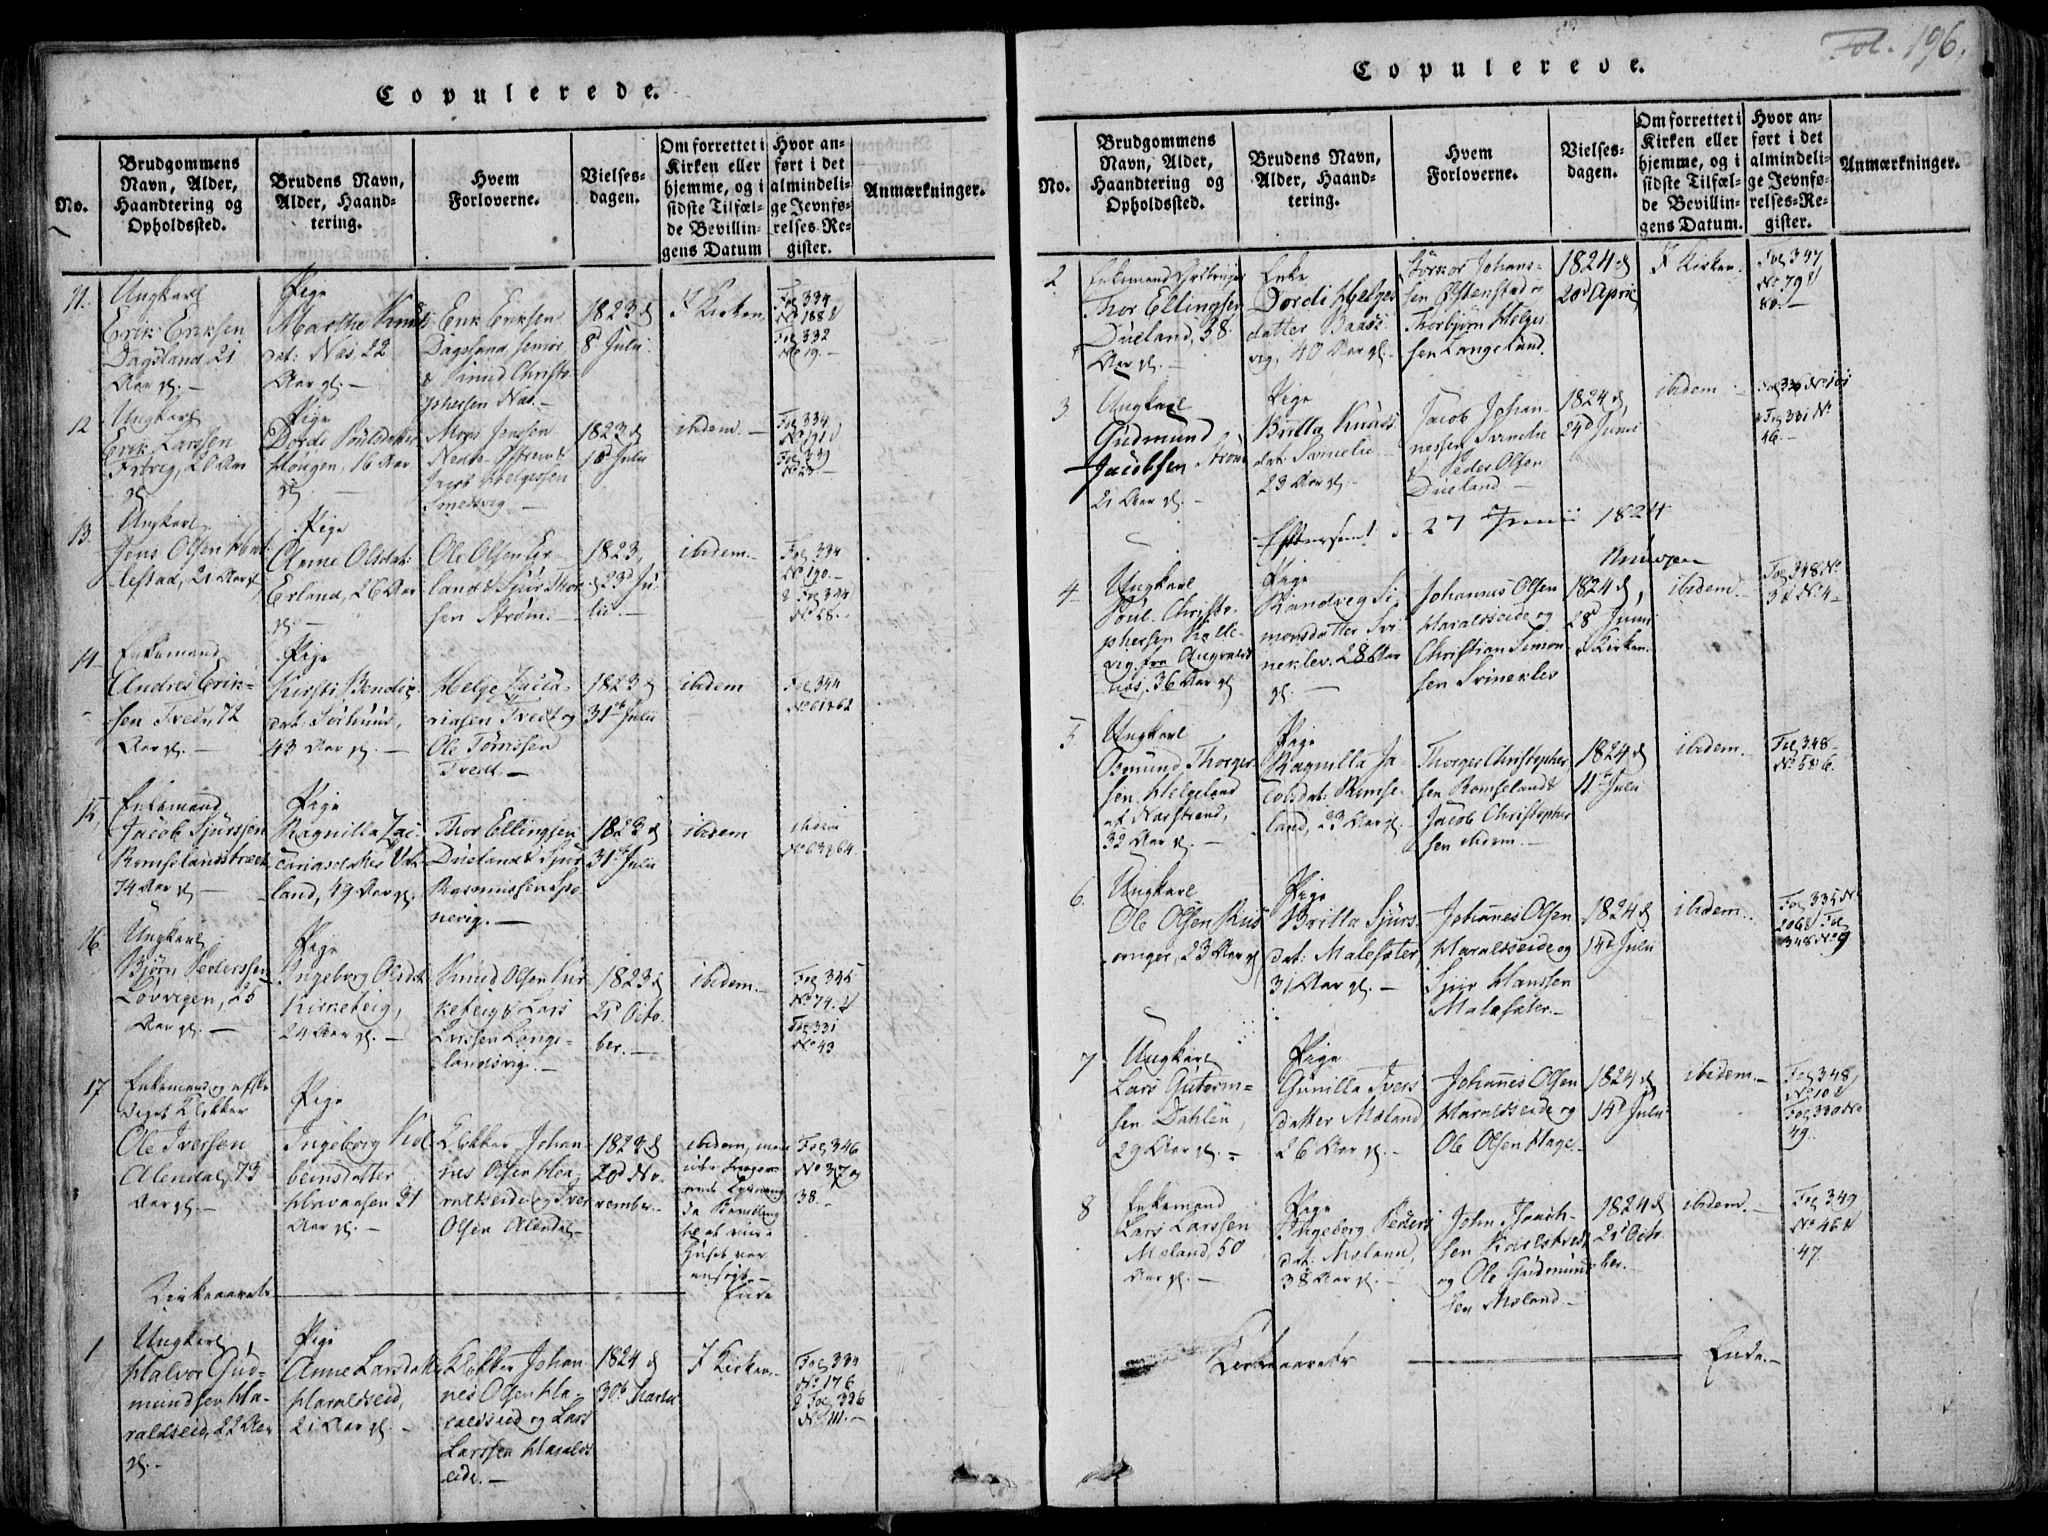 Copulerede.
No.
Brudgommens
Navn, Alder,
Haandtering og
Opholdssted.
Brudens Navn,
Alder, Haand-
tering.
Hvem
Forloverne.
Vielses-
dagen.
Om forrettet i
Kirken eller
hjemme, og i
sidste Tilfæl-
de Bevillin-
gens Datum
Hvor an-
ført i det
almindeli-
ge Jevnfø-
relses-Re-
gister.
Anmærkninger.
11.
Ungkarl
Erik Eriksen
Dagsland 21
Aar gl. —
Pige
Marthe Knuds
dat: Næs, 22
Aar gl. —
Erik Eriksen
Dagsland senior
& Knud Christo-
phersen Næs. —
1823 d
8d Julii
I Kirken
Fol 334
No 188 &
Fol 332
No 19. —
12
Ungkarl
Erik Larssen
20 Aar
gl.
Pige
Dordi Poulsdatter
Hougen, 16 Aar
gl. —
Mons Jenssen
Jacob Helgessen
Smedsvig —
1823 d
10d Julii
ibidem. —
Fol 334
No 191 &
13.
Ungkarl
Jens Olsen
21 Aar gl.
Pige
Anne Olsdat:
Erland, 26 Aar
gl. —
Ole Olsen Er-
land & Sjur Thor-
sen Strøm. —
1823,
d 23d Ju-
lii. —
ibidem. —
Fol 334
No 190. —
& Fol 344
No 28. —
14
Enkemand
Andres Erik-
sen Tvedt, 72
Aar gl. —
Pige
Kirsti Bendix
dat: Sørhuus,
43 Aar gl. —
Helge Zacca-
riasen Tvedt og
Ole Tørrissen
Tvedt. —
1823 d
31te Julii
ibidem
Fol 344
No 61 & 62
15,
Enkemand
Jacob Sjurssen
Romselandstvedt
74 Aar gl. —
Pige
Ragnilla Zac-
cariasdatter
land, 49 Aar gl.
Thor Ellingsen
Dueland & Sjur
Rasmussen Spo-
nevig. —
1823 d
31te Julii
ibidem
ibidem
No 63 & 64.
16.
Ungkarl
Bjørn Pederssen
Løvvigen, 25
Aar gl. —
Pige
Ingeborg Olsdat
Kirketeig,
24 Aar gl. —
Knud Olsen Kir-
keteig & Lars
Larssen Lange-
landsvig. —
1823 d
21 Octo-
ber. —
ibidem. —
Fol 345
No 74. &
Fol 331
No 43
17
Enkemand og afske-
diget Klokker
Ole Iversen
Alendal, 73
Aar gl. —
Pige
Ingeborg Kol-
beinsdatter
31
Aar gl. —
Klokker Johan-
nes Olsen Ha-
raldseide og Iver
Olsen Alendal —
1823 d
20d No-
vember. —
ibidem, men
huset var
ansøgt. —
Fol 346
No 37 &
38. —
Kirkeaarets — Ende
1
Ungkarl,
Halvor Gud-
mundsen Ha-
raldseid, 22 Aar
gl. —
Pige
Anne Larsdatter
Haraldseid,
21 Aar gl. —
Klokker Johan-
nes Olsen Ha-
raldseid og Lars
Larssen Haralds
eide. —
1824 d
30te Martii
I Kirken. —
Fol 334
No 176
& Fol 326
No 111. —
Fol. 196.
Copulerede.
No.
Brudgommens
Navn, Alder,
Haandtering og
Opholdssted.
Brudens Navn,
Alder, Haand-
tering.
Hvem
Forloverne.
Vielses-
dagen.
Om forrettet i
Kirken eller
hjemme, og i
sidste Tilfæl-
de Bevillin-
gens Datum.
Hvor an-
ført i det
almindeli-
ge Jevnfø-
relses-Re-
gister.
Anmærkninger.
2
Enkemand
Thor Ellingsen
Dueland, 38
Aar gl. —
Enke
Dordi Helges
datter
vig, 40 Aar gl. —
Johans-
sen Østenstad &
Thorbjørn Helges
sen Langeland.
1824 d
20d April
I Kirken.
Fol 347
No 79 &
80. —
3
Ungkarl
Gudmund
Jacobsen Strøm
21 Aar gl. —
Pige
Britta Knuds
dat: Svinelie
23 Aar gl. —
Jacob Johan-
nessen Svinelie
& Peder Olsen
Dueland —
1824 d,
24d Junii
ibidem —
Fol 326 No 101
& Fol 331 No
46. —
27 Junii 1824
4
Ungkarl
Poul Christo-
phersen
vig fra Augvalds
næs, 36 Aar gl.
Pige
Randveg Si-
monsdatter Svi-
neklev. 28 Aar
gl. —
Johannes Olsen
Haraldseide og
Christian Simon-
sen Svineklev
1824 d,
28d Junii
i Kirken.
ibidem. —
Fol 348 No
3 & No 4 —
5.
Ungkarl
Osmund Thorger
sen, Helgeland
af Narstrand,
32 Aar gl. —
Pige
Ragnilla Ja-
cobsdat: Romse-
land, 23 Aar gl.
Thorger Christopher
sen Romseland &
Jacob Christopher
sen ibidem. —
1824 d
11te Julii
ibidem. —
Fol 348 —
No 5 & 6.
6.
Ungkarl
Ole Olsen Rus
vanger, 23 Aar gl
Pige
Britta Sjurs-
dat: Malesæter,
31 Aar gl. —
Johannes Olsen
Haraldseide og
Sjur Hanssen
Malesæter. —
1824 d
14d Julii
ibidem..
Fol 335 No
206 & Fol
348 No 9
7
Ungkarl
Lars Gutorm-
sen Dahlen,
29 Aar gl. —
Pige
Gunilla Ivers
datter Mæland
26 Aar gl. —
Johannes Olsen
Haraldseide og
Ole Olsen Hage. —
1824 d
14d Julii
ibidem. —
Fol 348,
No 10 &
Fol 330 No
49.
8
Enkemand
Lars Larssen
Mæland, 50
Aar gl. —
Pige
Ingeborg Peders
dat: Mæland,
38 Aar gl. —
John
sen
og Ole Gudmund
sen Mæland. —
1824 d
21 Octo-
ber. —
ibidem. —
Fol 349
No 46 &
47.
Kirkeaarets — Ende. —